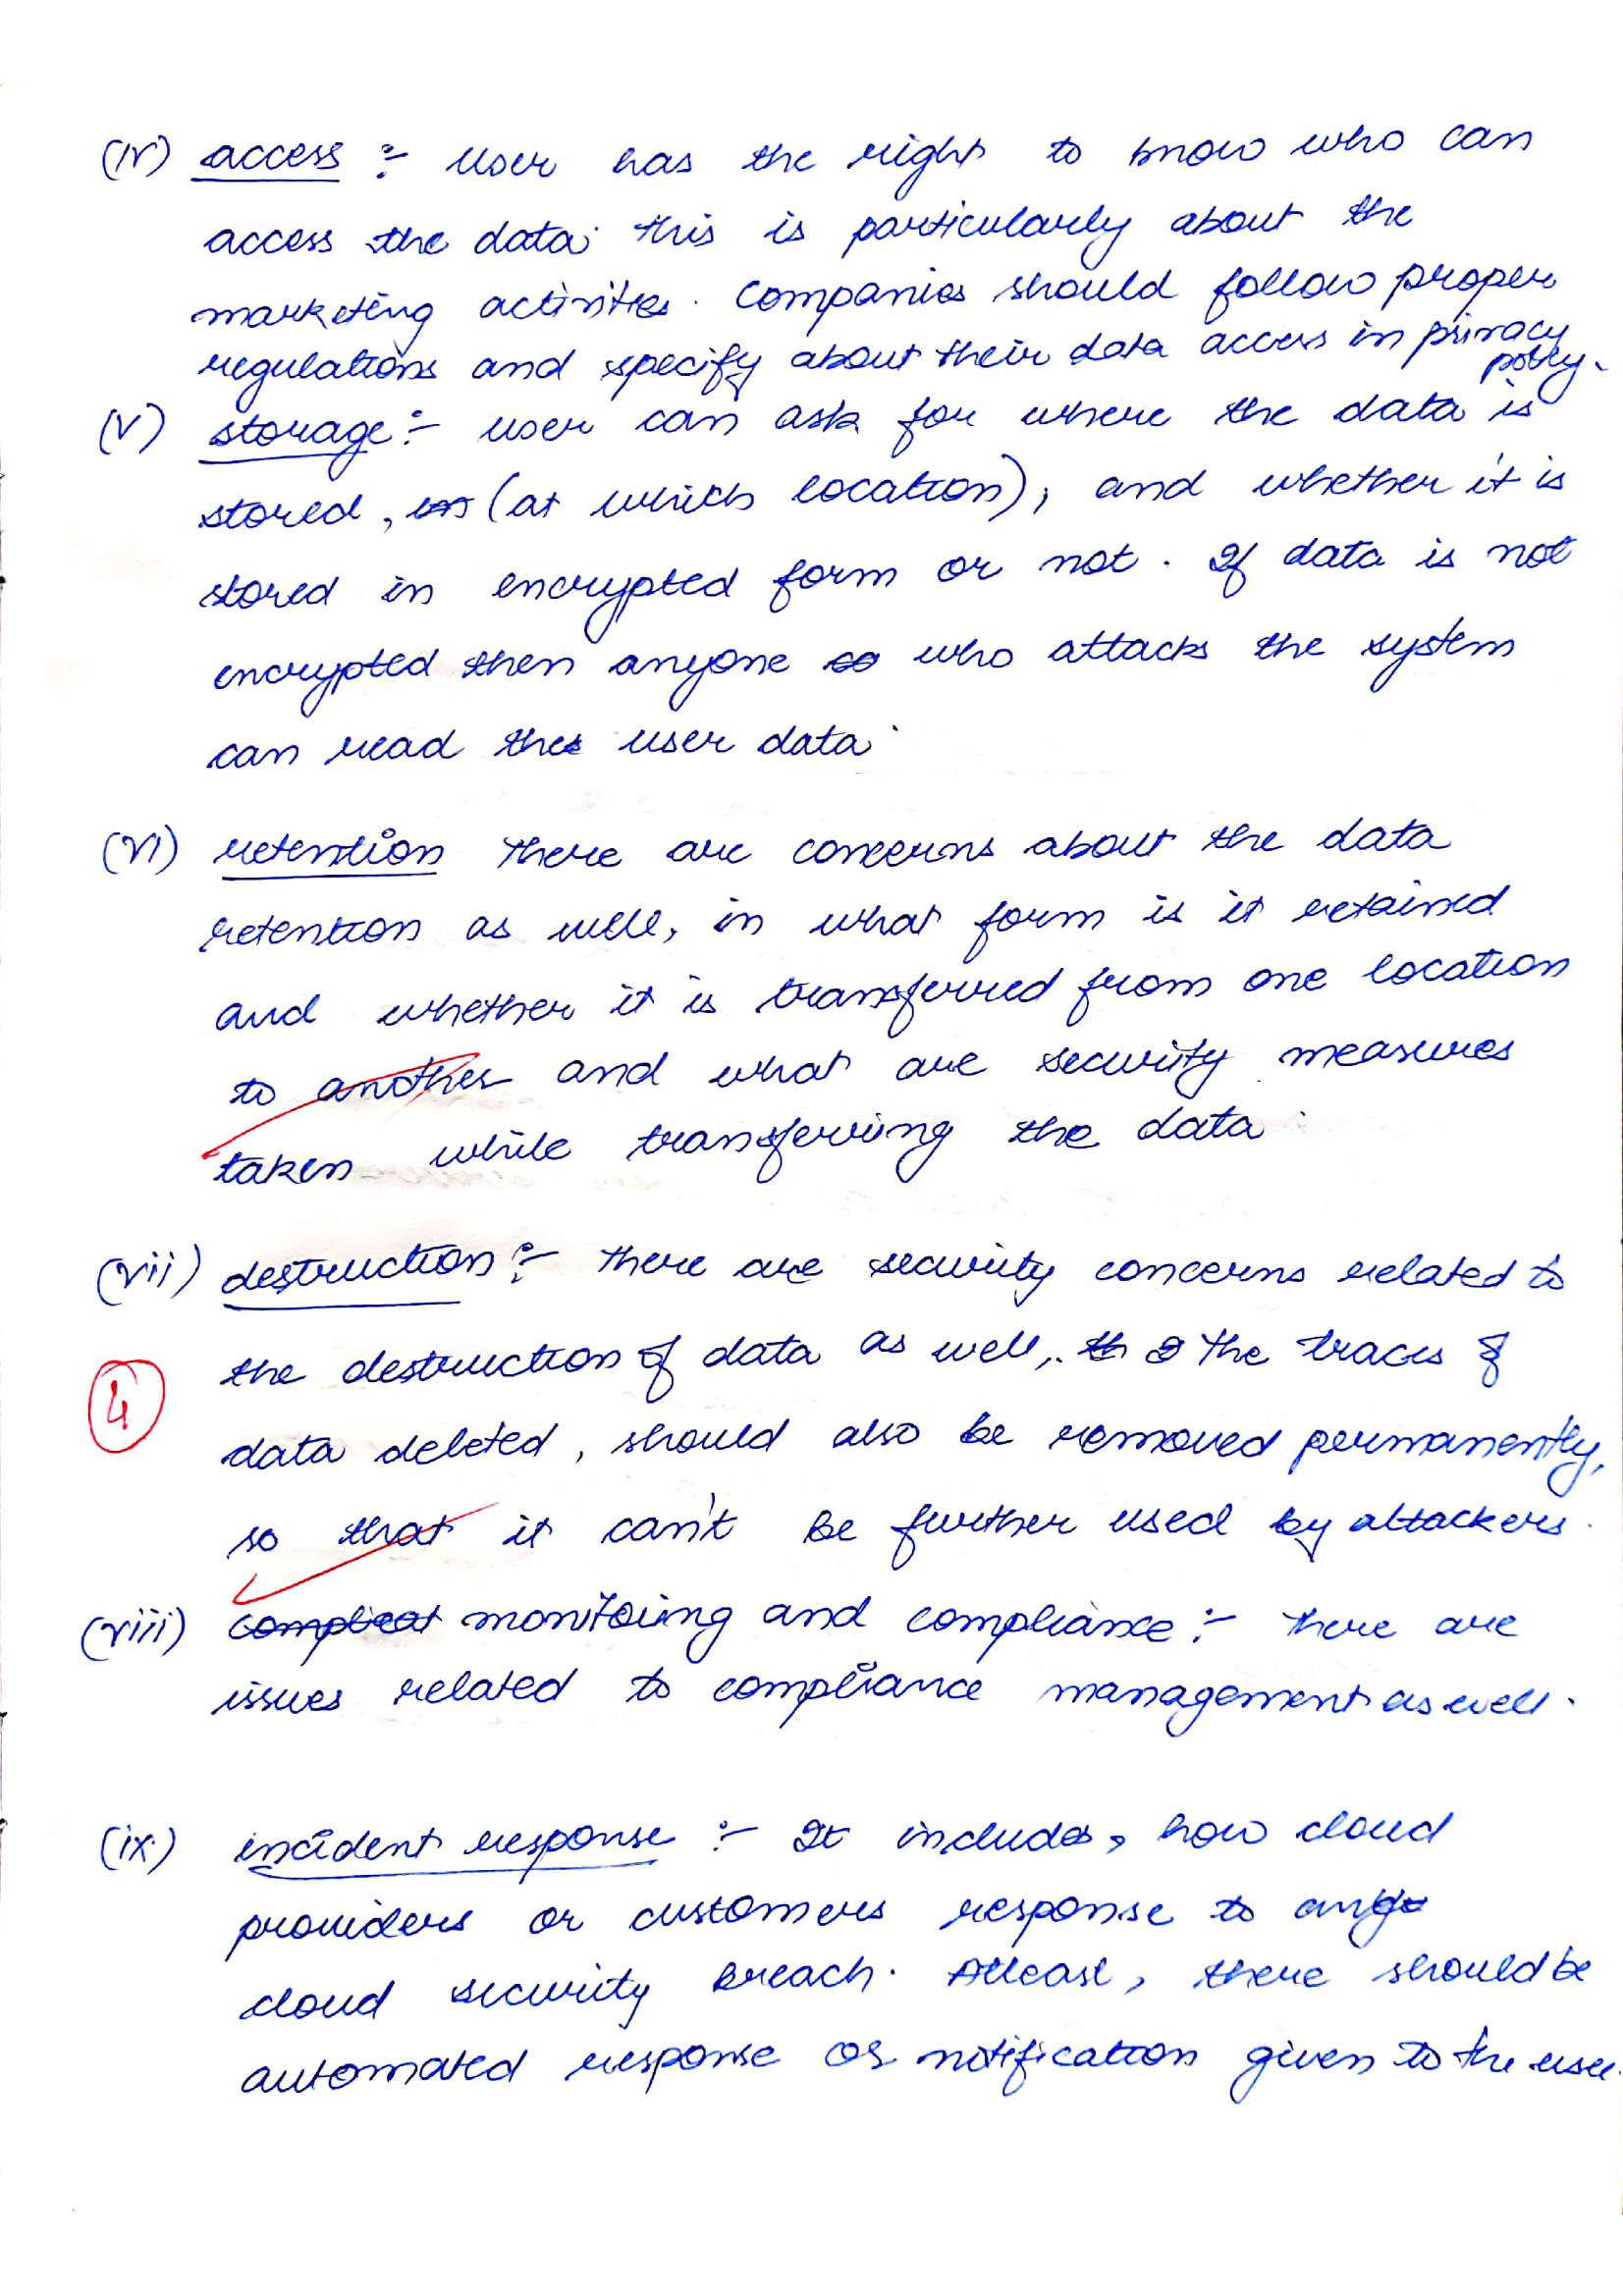 (iv) access :- user has the right to know who can
access the data. this is particularly about the
marketing activities. Companies should follow proper
regulations and specify about their data access in privacy
policy.
(v) storage :- user can ask for where the data is
stored, in (at which location), and whether it is
stored in encrypted form or not. If data is not
encrypted then anyone so who attacks the system
can read the user data.
(vi) retention There are concerns about the data
retention as well, in what form is it retained
and whether it is transferred from one location
to another and what are security measures
taken while transferring the data.
(vii) destruction :- there are security concerns related to
the destruction of data as well, th The traces of
4
data deleted, should also be removed permanently,
so that it can't be further used by attackers.
(viii) complicat monitoring and compliance :- there are
issues related to compliance management as well.
(ix) incident response :- It includes, how cloud
providers or customers response to any
cloud security breach. Atleast, there should be
automated response or notification given to the user.